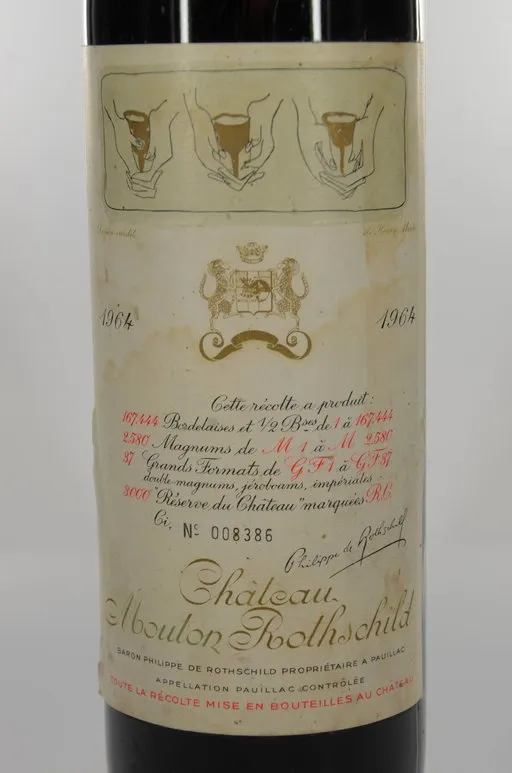 de Henry Moore
1964
1964
Cette récolte a produit:
167.444 Bordelaises et ½ Bses de 1 à 167.444
2.580 Magnums de M 1 à M 2.580
37 Grands Formats de GF1 à GF37
double magnums, jéroboams, impériales
3000 "Réserve du Château" marquées R.C.
Ci, Nº 008386
Philippe de Rothschild
Château
Mouton Rothschild
BARON PHILIPPE DE ROTHSCHILD PROPRIÉTAIRE A PAUILLAC
APPELLATION PAUILLAC CONTRÔLÉE
TOUTE LA RÉCOLTE MISE EN BOUTEILLES AU CHÂTEAU